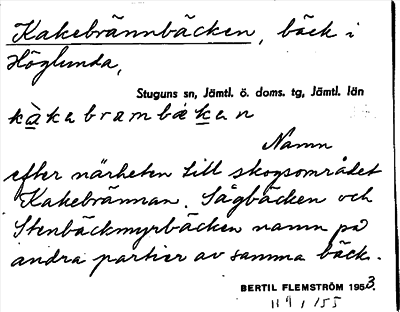 Kakebrännbäcken, bäck i
Höglunda,
Stuguns sn, Jämtl. ö. doms. tg, Jämtl. län
kàkabrambækan
Namn
efter närheten till skogsområdet
Kakebrännan. Sågbäcken och
Stenbäckmyrbäcken namn på
andra partier av samma bäck.
BERTIL FLEMSTRÖM 1953.